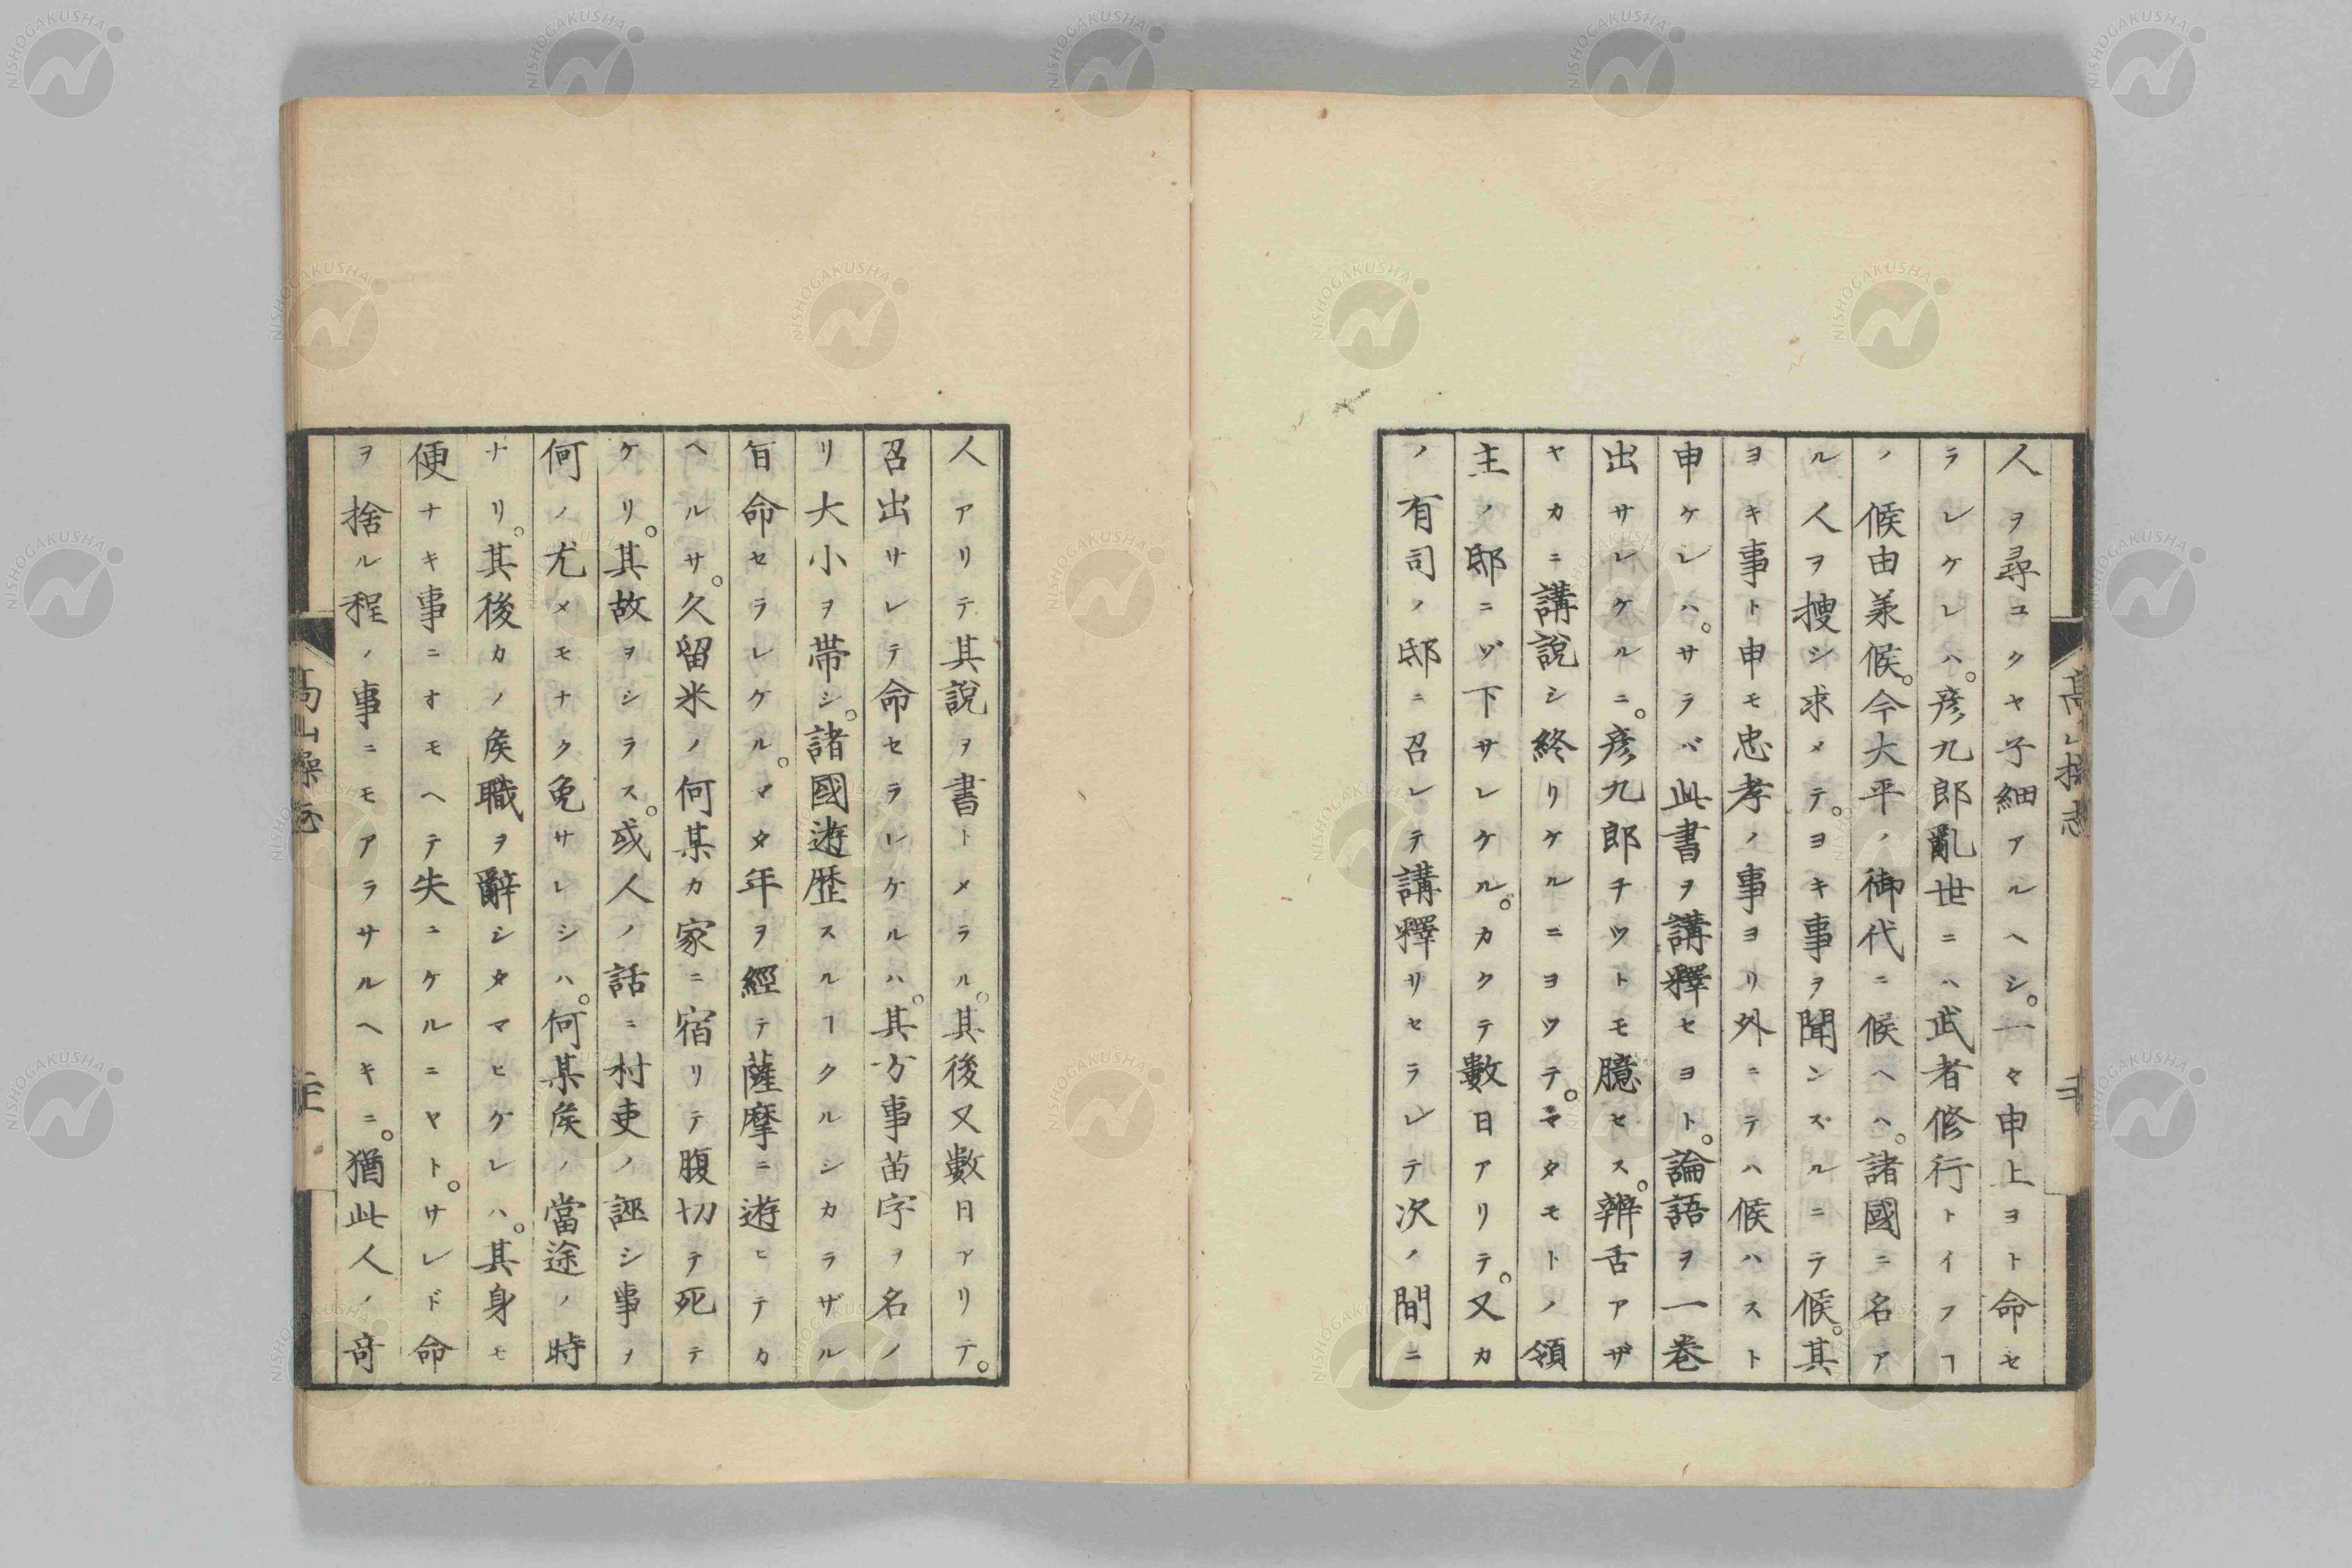 人ヲ尋コクヤ子細アルヘシ。一々申上ヨト命セ
ラレケレハ。彦九郎亂世ニハ武者修行トイフヿ
ノ候由羕候。今大平ノ御代ニ候ヘハ。諸國ニ名ア
ル人ヲ搜シ求メテ。ヨキ事ヲ聞ンズルニテ候。其
ヨキ事ト申モ忠孝ノ事ヨリ外ニテハ候ハスト
申ケレハ。サラバ此書ヲ講釋セヨト。論語ヲ一巻
出サレケルニ。彦九郎チツトモ臆セス。辨舌アザ
ヤカニ講說シ終リケルニヨツテ。マタモトノ領
主ノ邸ニゾ下サレケル。カクテ數日アリテ。又カ
ノ有司ノ邸ニ召レテ講釋サセラレテ次ノ間ニ
人アリテ其說ヲ書トメラル。其後又數日アリテ。
召出サレテ命セラレケルハ。其方事苗字ヲ名ノ
リ大小ヲ帶シ。諸國遊歴スルヿクルシカラザル
旨命セラレケル。マタ年ヲ經テ薩摩ニ遊ヒテカ
ヘルサ。久留米ノ何某カ家ニ宿リテ腹切テ死テ
ケリ。其故ヲシラス。或人ノ話ニ村吏ノ誣シ事ノ
何ノ尤メモナク免サレシハ。何某矦ノ當途ノ時
ナリ。其後カノ矦職ヲ辭シタマヒケレハ。其身モ
便ナキ事ニオモヘテ失ニケルニヤト。サレド命
ヲ捨ル程ノ事ニモアラサルヘキニ。猶此人ノ奇
高山操志
NISHOGAKUSHA